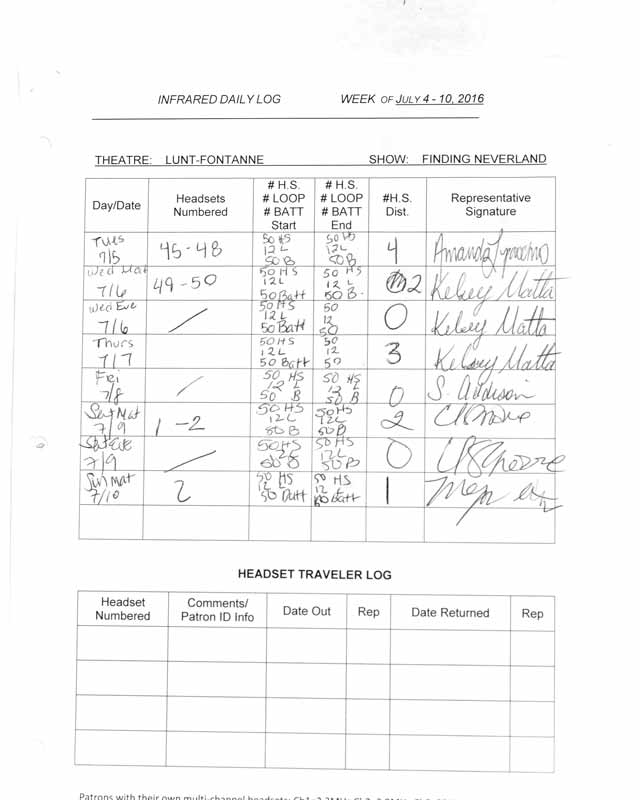 INFRARED DAILY LOG WEEK OF JULY 4 - 10, 2016
THEATRE: LUNT-FONTANNE SHOW: FINDING NEVERLAND
Day/Date
Headsets
Numbered
# H.S.
# LOOP
# BATT
Start
# H.S.
# LOOP
# BATT
End
#H.S.
Dist.
Representative
Signature
Tues
7/5
45-48
50 HS
12 L
50 B
50 HS
12 L
50 B
4
Amanda
Wed Mat
7/6
49-50
50 HS
12L
50 Batt
50 HS
12 L
50 B
2
Kelsey Matta
Wed Eve
7/6
50 HS
12 L
50 Batt
50
12
50
0
Kelsey Matta
Thurs
7/7
50 HS
12 L
50 Batt
50
12
50
3
Kelsey Matta
Fri
7/8
50 HS
12 L
50 B
50 HS
12 L
50 B
0
S. Addison
Sat Mat
7/9
1-2
50 HS
12 L
50 B
50 HS
12 L
50 B
2
Sat Eve
7/9
50 HS
12 L
50 HS
12 L
50 B
0
Sun Mat
7/10
2
50 HS
12 L
50 Batt
50 HS
12 L
50 Batt
1
HEADSET TRAVELER LOG
Headset
Numbered
Comments/
Patron ID Info
Date Out
Rep
Date Returned
Rep
Patrons with their own multi-channel headsets: